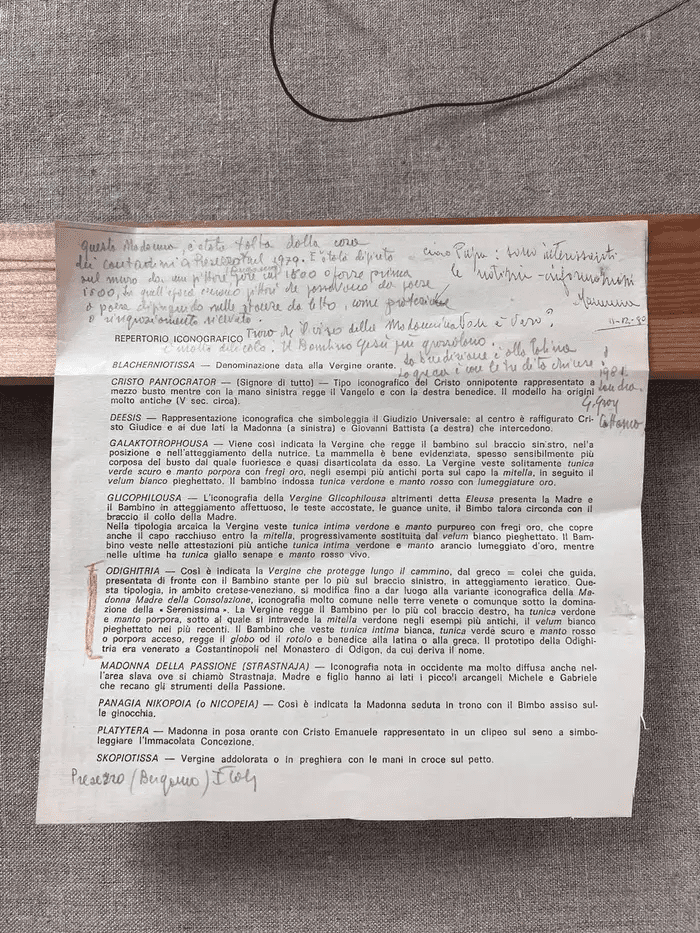 Questa Madonna, è stata tolta dalla casa
dei contadini a Presezzo nel 1979. È stata dipinta
sul muro da un pittore nel 1800 o forse prima
1800, in quell'epoca pittori che da paese
a paese dipingendo sulle da letto, come protezione
o ringraziamento ricevuto.
ciao Papà: sono interessanti
le notizie - informazioni
11-12-90
Trovo il viso della Madonnina è vero?
È molto delicato. Il Bambino Gesù più grossolano.
La benedizione è alla latina
la greca è con le tre dita chiuse
1981
REPERTORIO ICONOGRAFICO
BLACHERNIOTISSA — Denominazione data alla Vergine orante.
CRISTO PANTOCRATOR — (Signore di tutto) — Tipo iconografico del Cristo onnipotente rappresentato a
mezzo busto mentre con la mano sinistra regge il Vangelo e con la destra benedice. Il modello ha origini
molto antiche (V sec. circa).
DEESIS — Rappresentazione iconografica che simboleggia il Giudizio Universale: al centro è raffigurato Cri-
sto Giudice e ai due lati la Madonna (a sinistra) e Giovanni Battista (a destra) che intercedono.
GALAKTOTROPHOUSA — Viene così indicata la Vergine che regge il bambino sul braccio sinistro, nella
posizione e nell'atteggiamento della nutrice. La mammella è bene evidenziata, spesso sensibilmente più
corposa del busto dal quale fuoriesce e quasi disarticolata da esso. La Vergine veste solitamente tunica
verde scuro e manto porpora con fregi oro, negli esempi più antichi porta sul capo la mitella, in seguito il
velum bianco pieghettato. Il bambino indossa tunica verdone e manto rosso con lumeggiature oro.
GLICOPHILOUSA — L'iconografia della Vergine Glicophilousa altrimenti detta Eleusa presenta la Madre e
il Bambino in atteggiamento affettuoso, le teste accostate, le guance unite, il Bimbo talora circonda con il
braccio il collo della Madre.
Nella tipologia arcaica la Vergine veste tunica intima verdone e manto purpureo con fregi oro, che copre
anche il capo racchiuso entro la mitella, progressivamente sostituita dal velum bianco pieghettato. Il Bam-
bino veste nelle attestazioni più antiche tunica intima verdone e manto arancio lumeggiato d'oro, mentre
nelle ultime ha tunica giallo senape e manto rosso vivo.
ODIGHITRIA — Così è indicata la Vergine che protegge lungo il cammino, dal greco = colei che guida,
presentata di fronte con il Bambino stante per lo più sul braccio sinistro, in atteggiamento ieratico. Que-
sta tipologia, in ambito cretese-veneziano, si modifica fino a dar luogo alla variante iconografica della Ma-
donna Madre della Consolazione, iconografia molto comune nelle terre venete o comunque sotto la domina-
zione della « Serenissima ». La Vergine regge il Bambino per lo più col braccio destro, ha tunica verdone
e manto porpora, sotto al quale si intravede la mitella verdone negli esempi più antichi, il velum bianco
pieghettato nei più recenti. Il Bambino che veste tunica intima bianca, tunica verde scuro e manto rosso
o porpora acceso, regge il globo od il rotolo e benedice alla latina o alla greca. Il prototipo della Odighi-
tria era venerato a Costantinopoli nel Monastero di Odigon, da cui deriva il nome.
MADONNA DELLA PASSIONE (STRASTNAJA) — Iconografia nota in occidente ma molto diffusa anche nel-
l'area slava ove si chiamò Strastnaja. Madre e figlio hanno ai lati i piccoli arcangeli Michele e Gabriele
che recano gli strumenti della Passione.
PANAGIA NIKOPOIA (o NICOPEIA) — Così è indicata la Madonna seduta in trono con il Bimbo assiso sul-
le ginocchia.
PLATYTERA — Madonna in posa orante con Cristo Emanuele rappresentato in un clipeo sul seno a simbo-
leggiare l'Immacolata Concezione.
SKOPIOTISSA — Vergine addolorata o in preghiera con le mani in croce sul petto.
Presezzo (Bergamo)